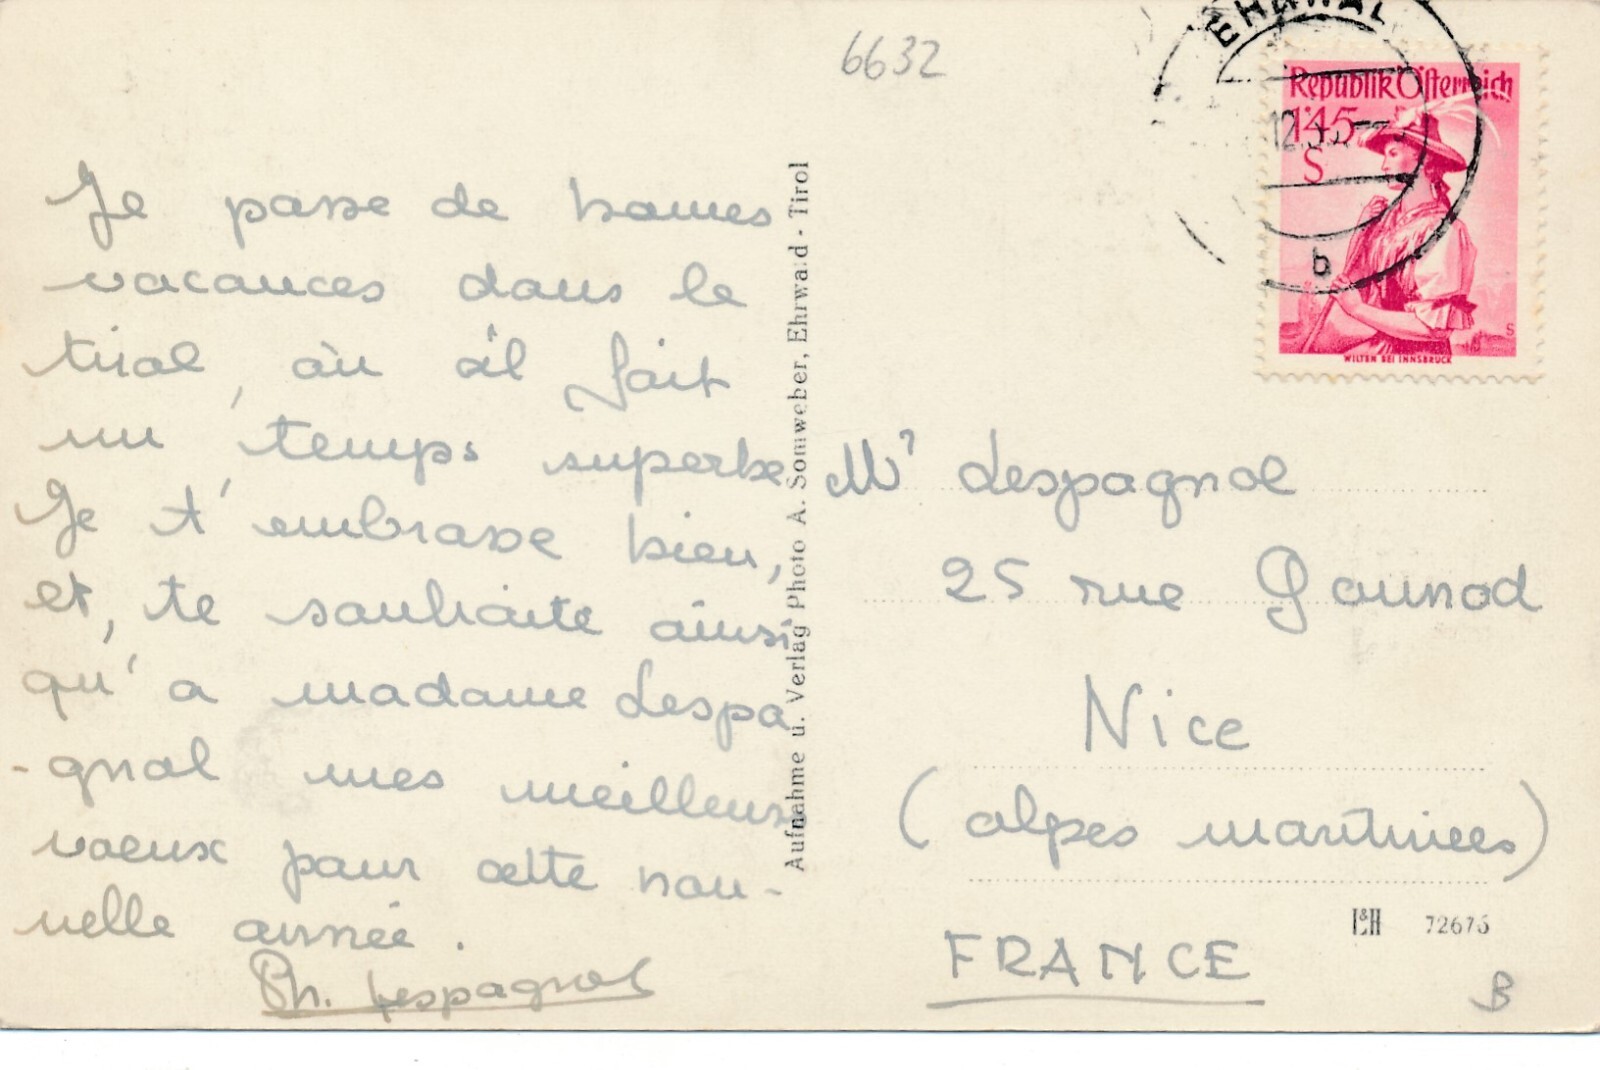 6632
Je passe de bonnes
vacances dans le
tirol, où il fait
un temps superbe
Je t'embrasse bien,
et, te souhaite ainsi
qu'a madame Lespa
-gnol mes meilleurs
voeux pour cette nou-
velle année.
Ph. Lespagnol
Aufnahme u. Verlag Photo A. Somweber, Ehrwald - Tirol
EHRWALD
12.
b
Republik Österreich
1'45
S
WILTEN BEI INNSBRUCK
Mr Lespagnol
25 rue Gounod
Nice
(alpes maritimes)
FRANCE
L&H 72675
B